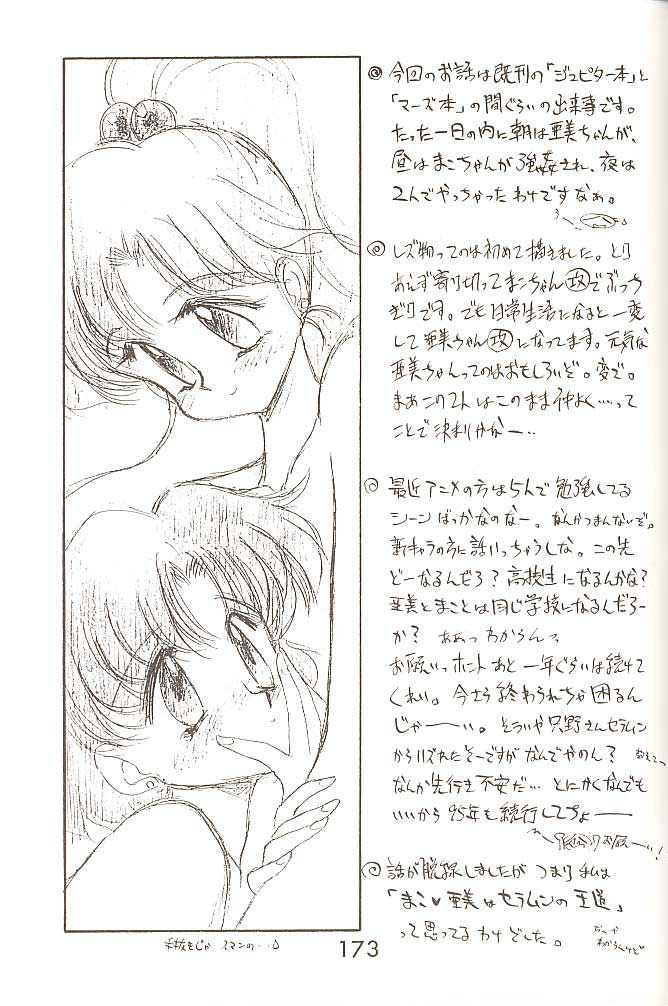 ◎ 今回のお話は既刊の「ジュピター本」と
「マーズ本」の間ぐらいの出来事です。
たった一日の内に朝は亜美ちゃんが、
昼はまこちゃんが強姦され、夜は
2人でやっちゃったわけですなぁ。
◎ レズ物ってのは初めて描きました。とり
あえず寄り切ってまこちゃん攻でぶっち
ぎりです。でも日常生活になると一変
して亜美ちゃん攻になってます。元気な
亜美ちゃんってのはおもしろいぞ。変で。
まあこの2人はこのまま仲よく…って
ことで決まりかなー…
◎ 最近アニメの方は5人で勉強してる
シーンばっかなのなー。なんかつまんないぞ。
新キャラの方に話いっちゃうしな。この先
どーなるんだろ？高校生になるんかな？
亜美とまことは同じ学校になるんだろー
か？ああっわからんっ
お願いっホントあと一年ぐらいは続けて
くれい。今さら終わられちゃ困るん
じゃーーい。そういや只野さんセラムン
からハズれたそーですがなんでやのん？
なんか先行き不安だ…とにかくなんでも
いいから95年も続行してちょーー
◎ 話が脱線しましたがつまり私は
「まこ♥亜美はセラムンの王道」
って思ってるわけでした。
173